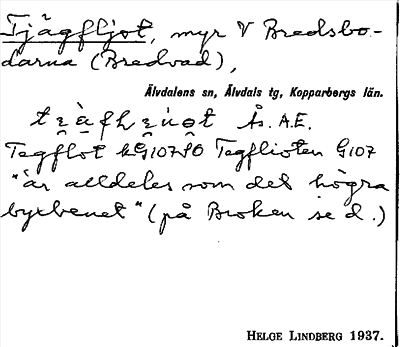 Tjågfljot, myr V Bredsbo-
darna (Bredvad),
Älvdalens sn, Älvdals tg, Kopparbergs län.
Ås. A.E.
Tegflot kG107SO Tegflioten G107
"är alldeles som det högra
byxbenet" (på Broken se d.)
HELGE LINDBERG 1937.